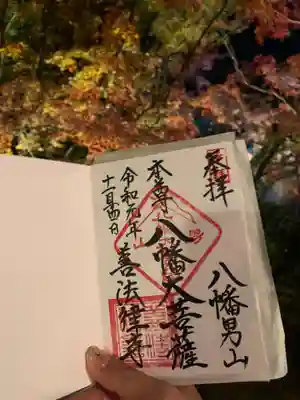 奉拝
八幡男山
本尊 八幡大菩薩
令和元年
十一月
善法律寺